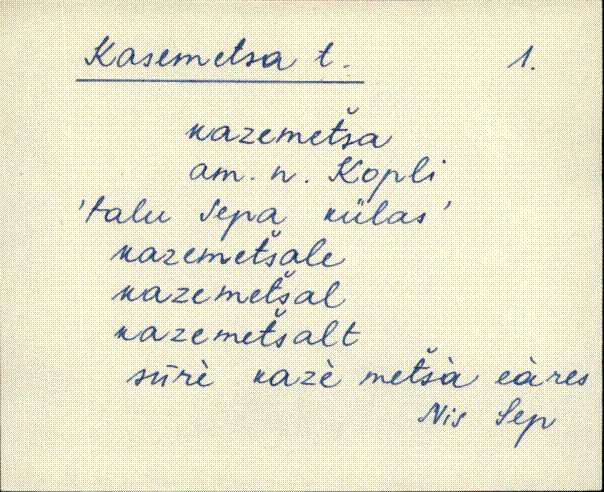 Kasemetsa t. 1.
ᴋazemetš̆a
am. n. Kopli
'talu Sepa ᴋülas'
ᴋazemetš̆ale
ᴋazemetš̆al
ᴋazemetš̆alt
sūrè ᴋazè metš̆à eàres
Nis Sep